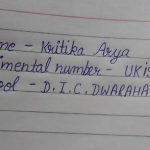 me - Kritika Arya
imental number - UKIS
ool - D.I.C. DWARAHA